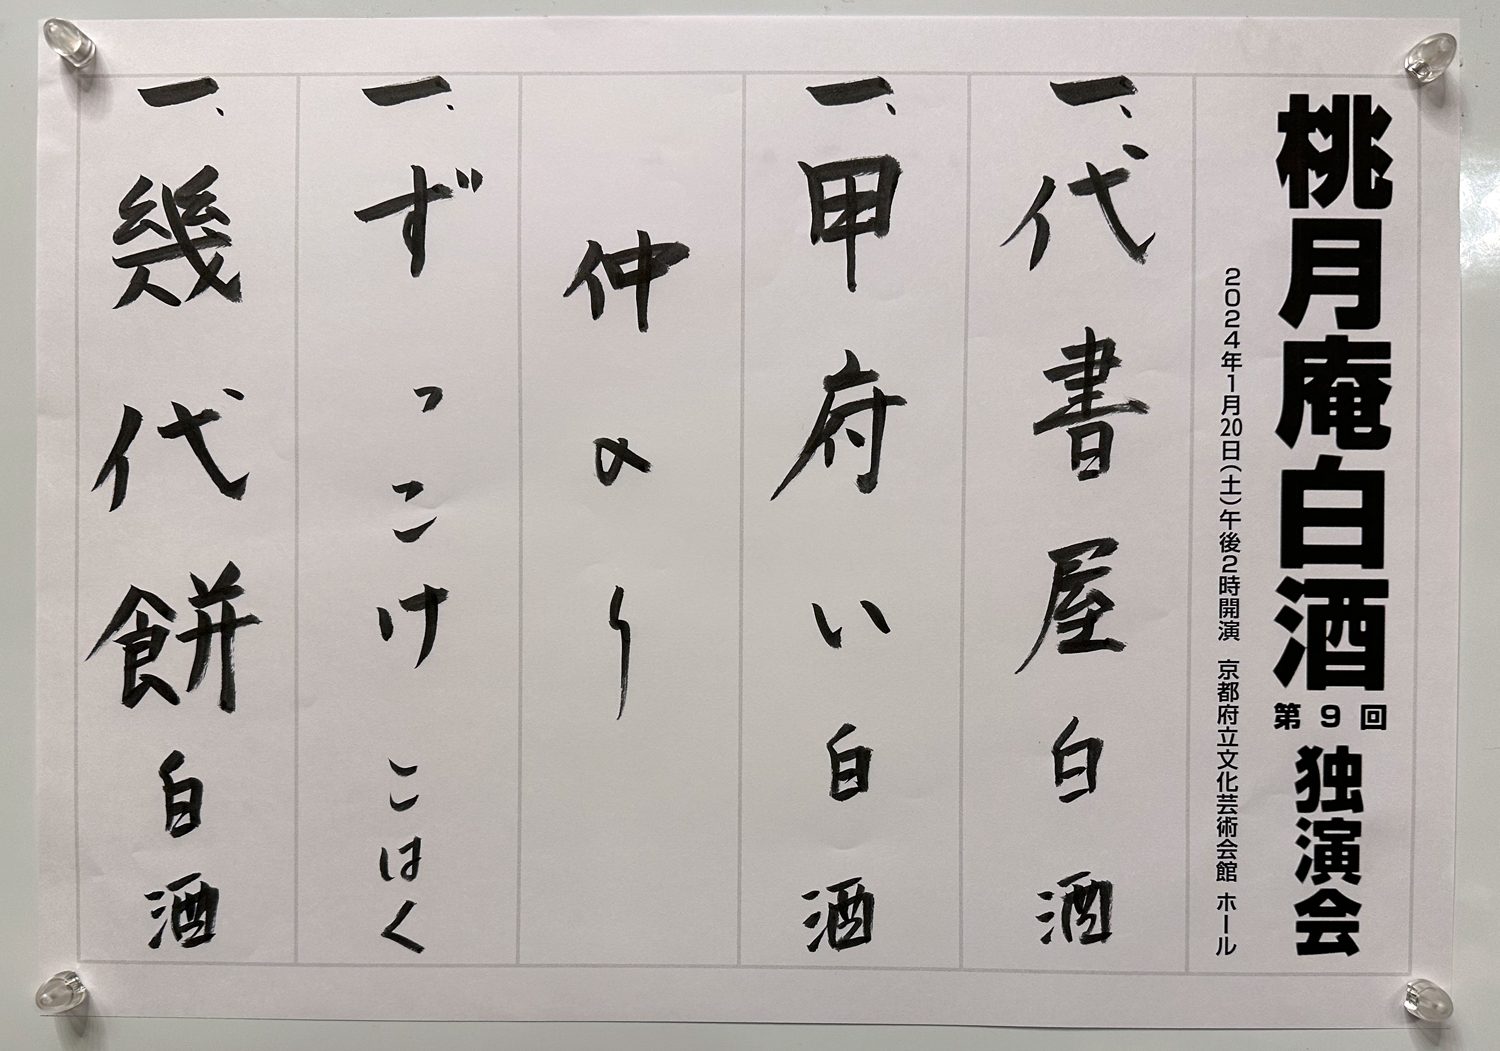 桃月庵白酒 第9回 独演会
2024年1月20日(土)午後2時開演 京都府立文化芸術会館 ホール
一、代書屋 白酒
一、甲府い 白酒
仲の〳
一、ずっこけ こはく
一、幾代餅 白酒